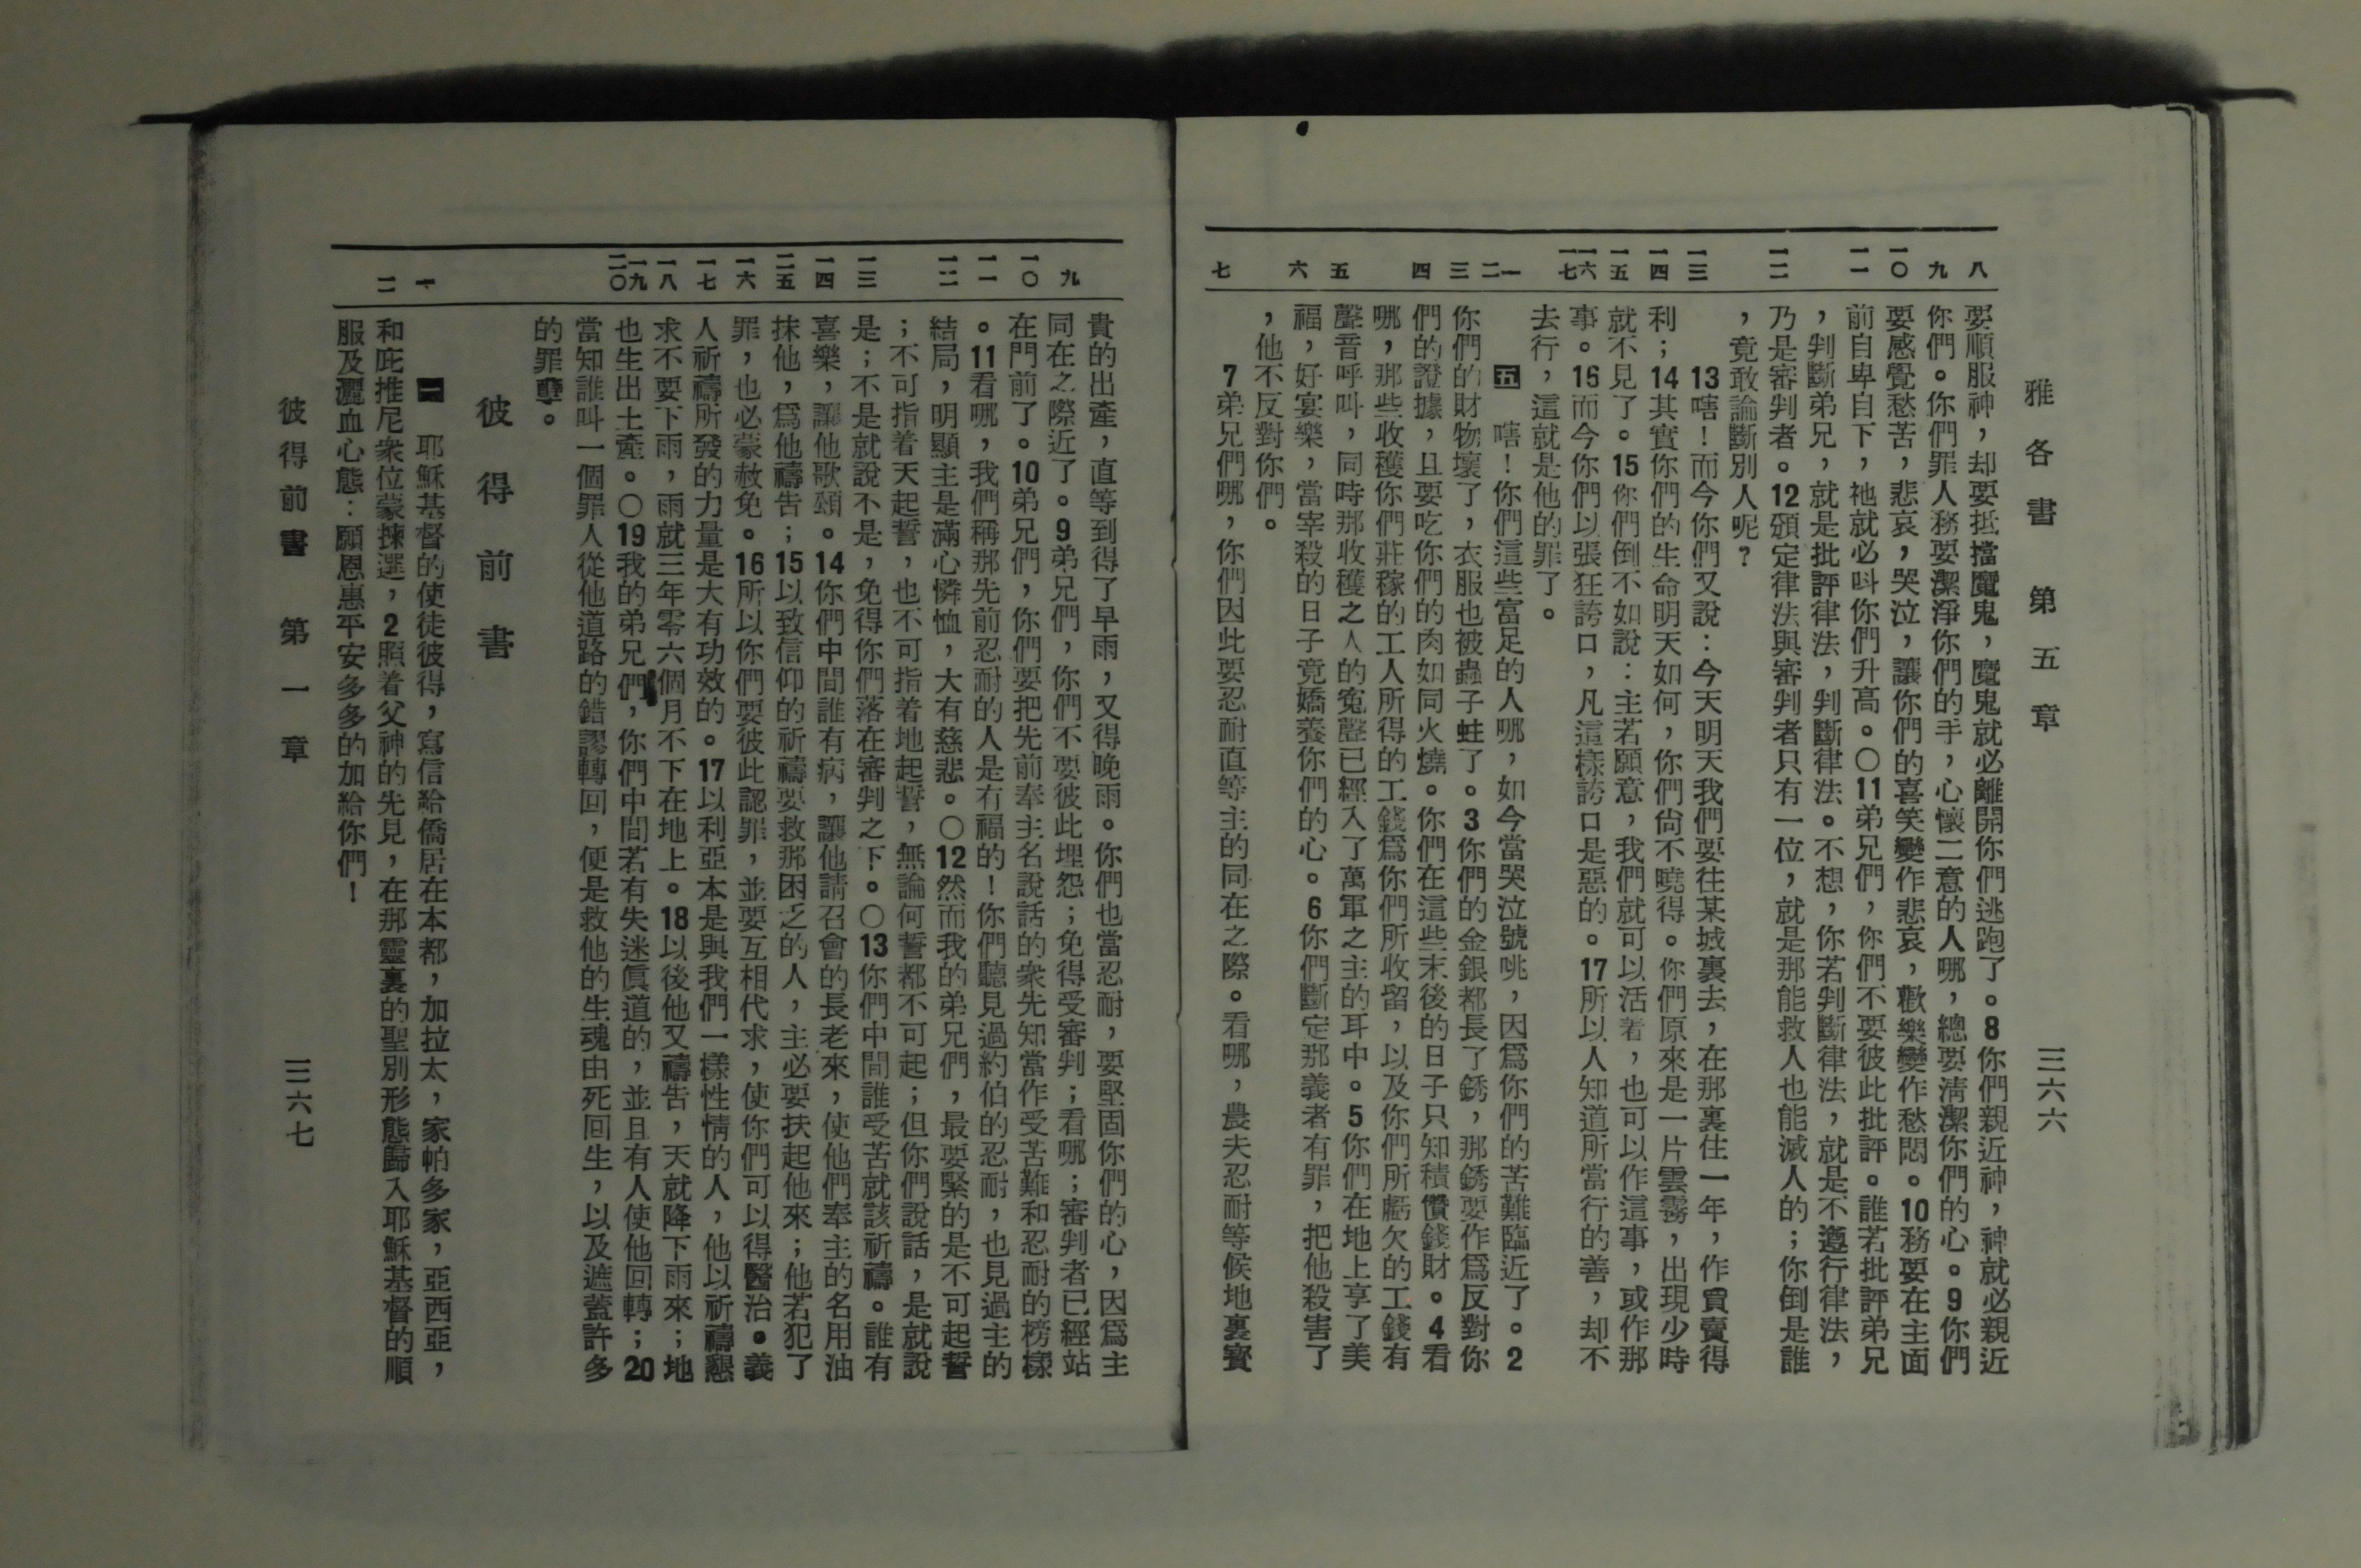 雅各書 第五章 三六六
八 九 一〇 一一 一二 一三 一四 一五 一六 一七 一 二 三 四 五 六 七
要順服神，却要抵擋魔鬼，魔鬼就必離開你們逃跑了。8你們親近神，神就必親近
你們。你們罪人務要潔淨你們的手，心懷二意的人哪，總要淸潔你們的心。9你們
要感覺愁苦，悲哀，哭泣，讓你們的喜笑變作悲哀，歡樂變作愁悶。10務要在主面
前自卑自下，祂就必叫你們升高。〇11弟兄們，你們不要彼此批評。誰若批評弟兄
，判斷弟兄，就是批評律法，判斷律法。不想，你若判斷律法，就是不遵行律法，
乃是審判者。12頒定律法與審判者只有一位，就是那能救人也能滅人的；你倒是誰
，竟敢論斷別人呢？
13嗐！而今你們又說：今天明天我們要往某城裏去，在那裏住一年，作買賣得
利；14其實你們的生命明天如何，你們尙不曉得。你們原來是一片雲霧，出現少時
就不見了。15你們倒不如說：主若願意，我們就可以活着，也可以作這事，或作那
事。16而今你們以張狂誇口，凡這樣誇口是惡的。17所以人知道所當行的善，却不
去行，這就是他的罪了。
五 嗐！你們這些富足的人哪，如今當哭泣號咷，因爲你們的苦難臨近了。2
你們的財物壞了，衣服也被蟲子蛀了。3你們的金銀都長了銹，那銹要作爲反對你
們的證據，且要吃你們的肉如同火燒。你們在這些末後的日子只知積儹錢財。4看
哪，那些收穫你們莊稼的工人所得的工錢爲你們所收留，以及你們所虧欠的工錢有
聲音呼叫，同時那收穫之人的寃聲已經入了萬軍之主的耳中。5你們在地上享了美
福，好宴樂，當宰殺的日子竟嬌養你們的心。6你們斷定那義者有罪，把他殺害了
，他不反對你們。
7弟兄們哪，你們因此要忍耐直等主的同在之際。看哪，農夫忍耐等候地裏寶
九 一〇 一一 一二 一三 一四 一五 一六 一七 一八 一九 二〇 一 二
貴的出產，直等到得了早雨，又得晚雨。你們也當忍耐，要堅固你們的心，因爲主
同在之際近了。9弟兄們，你們不要彼此埋怨；免得受審判；看哪；審判者已經站
在門前了。10弟兄們，你們要把先前奉主名說話的衆先知當作受苦難和忍耐的榜樣
。11看哪，我們稱那先前忍耐的人是有福的！你們聽見過約伯的忍耐，也見過主的
結局，明顯主是滿心憐恤，大有慈悲。〇12然而我的弟兄們，最要緊的是不可起誓
；不可指着天起誓，也不可指着地起誓，無論何誓都不可起；但你們說話，是就說
是；不是就說不是，免得你們落在審判之下。〇13你們中間誰受苦就該祈禱。誰有
喜樂，讓他歌頌。14你們中間誰有病，讓他請召會的長老來，使他們奉主的名用油
抹他，爲他禱告；15以致信仰的祈禱要救那困乏的人，主必要扶起他來；他若犯了
罪，也必蒙赦免。16所以你們要彼此認罪，並要互相代求，使你們可以得醫治。義
人祈禱所發的力量是大有功效的。17以利亞本是與我們一樣性情的人，他以祈禱懇
求不要下雨，雨就三年零六個月不下在地上。18以後他又禱告，天就降下雨來；地
也生出土產。〇19我的弟兄們，你們中間若有失迷眞道的，並且有人使他回轉；20
當知誰叫一個罪人從他道路的錯謬轉回，便是救他的生魂由死回生，以及遮蓋許多
的罪孽。
彼得前書
一 耶穌基督的使徒彼得，寫信給僑居在本都，加拉太，家帕多家，亞西亞，
和庇推尼衆位蒙揀選，2照着父神的先見，在那靈裏的聖別形態歸入耶穌基督的順
服及灑血心態：願恩惠平安多多的加給你們！
彼得前書 第一章 三六七